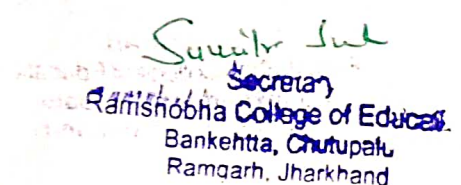 Secretary
Ramshobha College of Educati
Bankehtta, Chutupalu
Ramgarh, Jharkhand